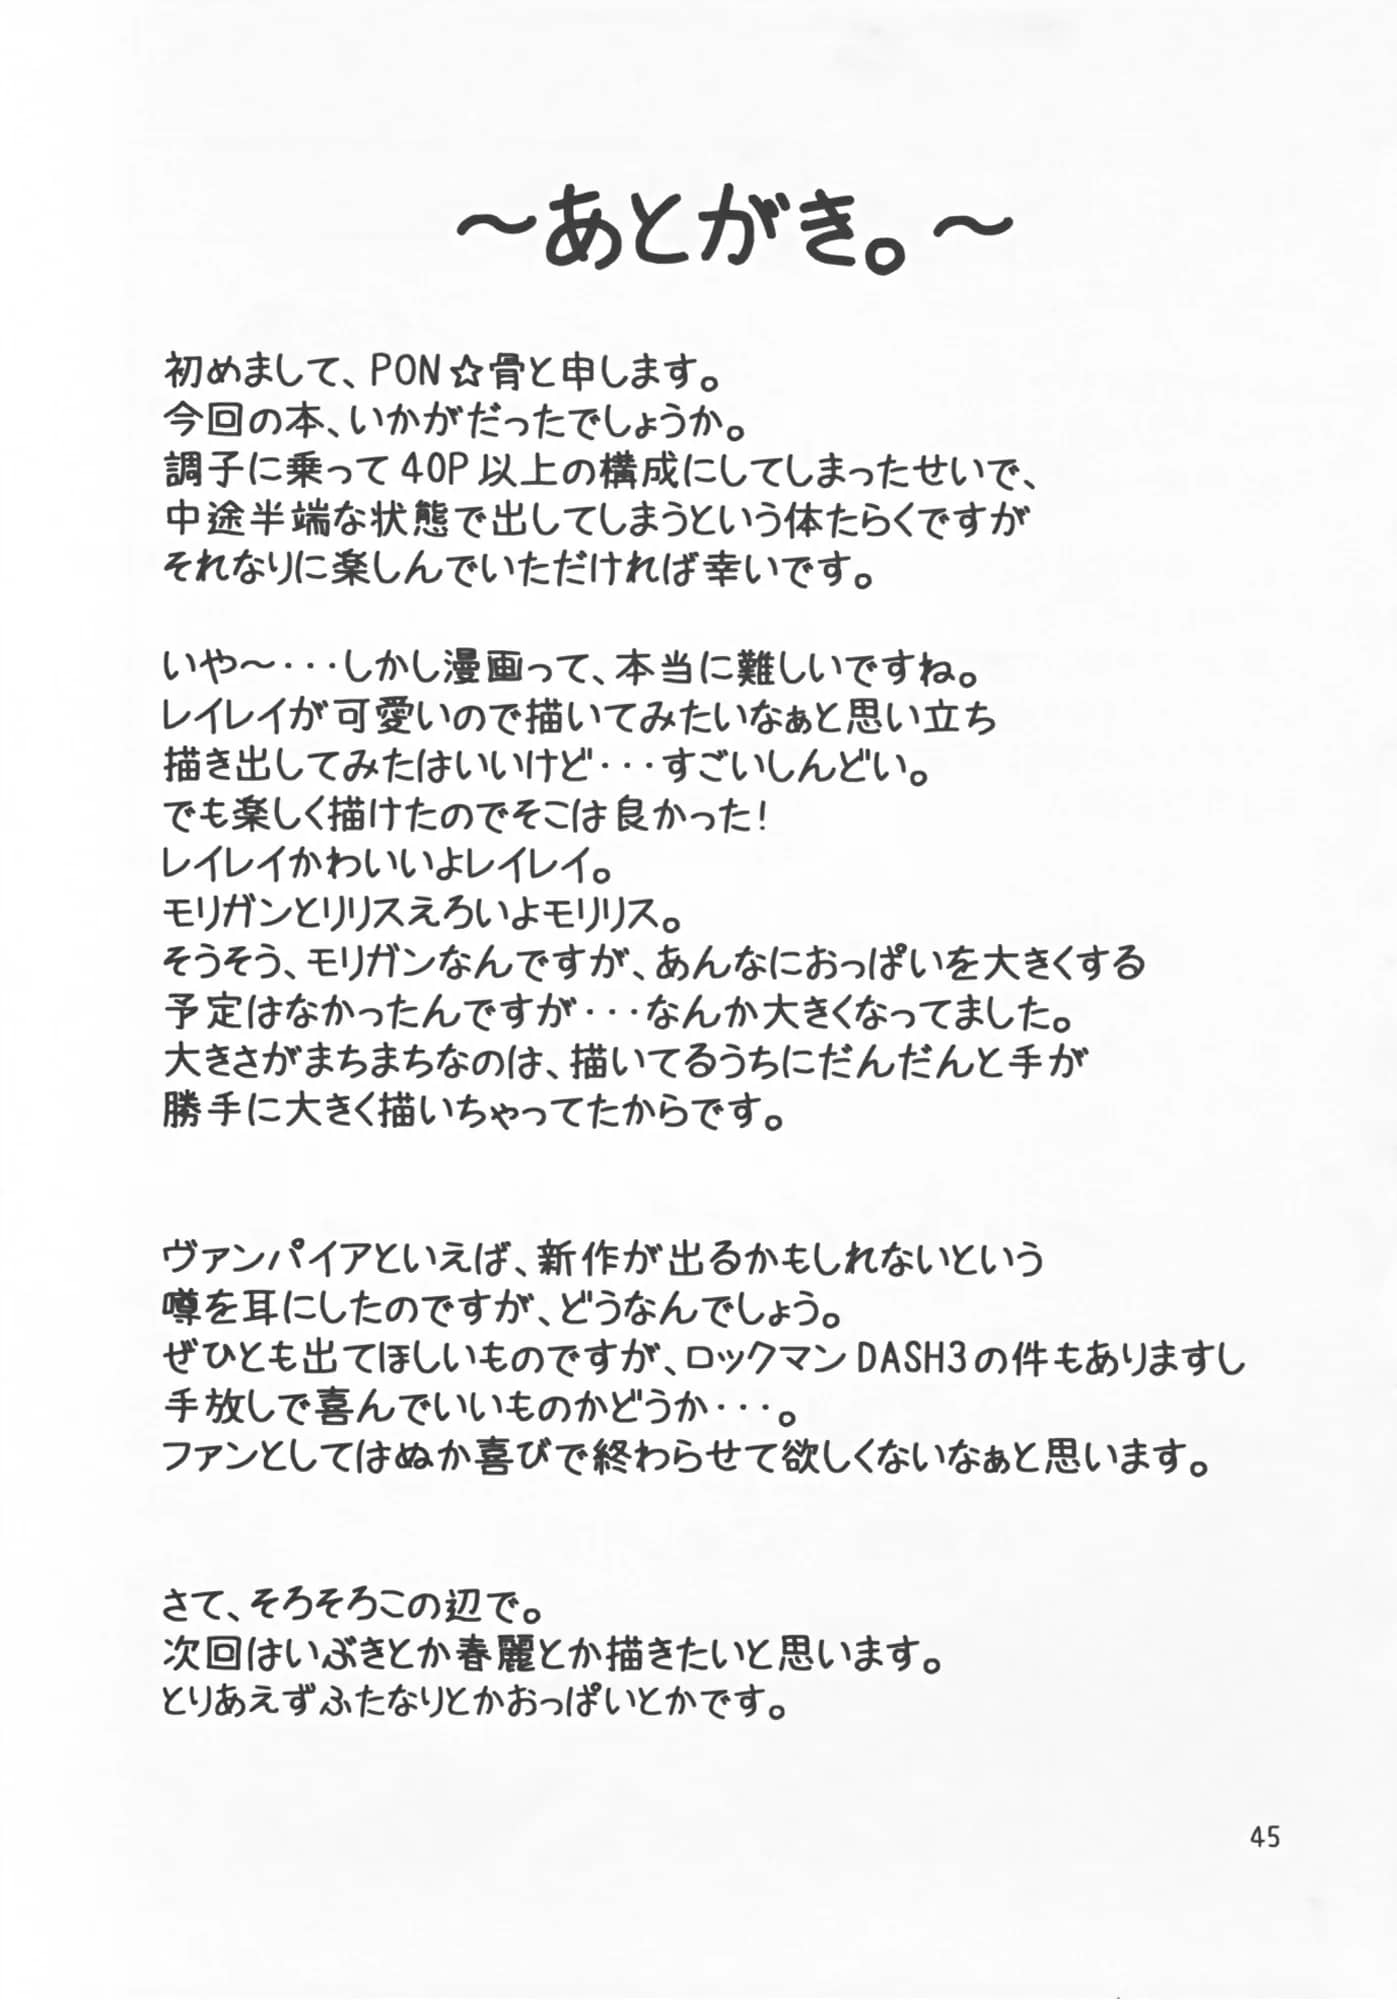 ～あとがき。～
初めまして、PON☆骨と申します。
今回の本、いかがだったでしょうか。
調子に乗って40P以上の構成にしてしまったせいで、
中途半端な状態で出してしまうという体たらくですが
それなりに楽しんでいただければ幸いです。
いや～・・・しかし漫画って、本当に難しいですね。
レイレイが可愛いので描いてみたいなぁと思い立ち
描き出してみたはいいけど・・・すごいしんどい。
でも楽しく描けたのでそこは良かった！
レイレイかわいいよレイレイ。
モリガンとリリスえろいよモリリス。
そうそう、モリガンなんですが、あんなにおっぱいを大きくする
予定はなかったんですが・・・なんか大きくなってました。
大きさがまちまちなのは、描いてるうちにだんだんと手が
勝手に大きく描いちゃってたからです。
ヴァンパイアといえば、新作が出るかもしれないという
噂を耳にしたのですが、どうなんでしょう。
ぜひとも出てほしいものですが、ロックマンDASH3の件もありますし
手放しで喜んでいいものかどうか・・・。
ファンとしてはぬか喜びで終わらせて欲しくないなぁと思います。
さて、そろそろこの辺で。
次回はいぶきとか春麗とか描きたいと思います。
とりあえずふたなりとかおっぱいとかです。
45